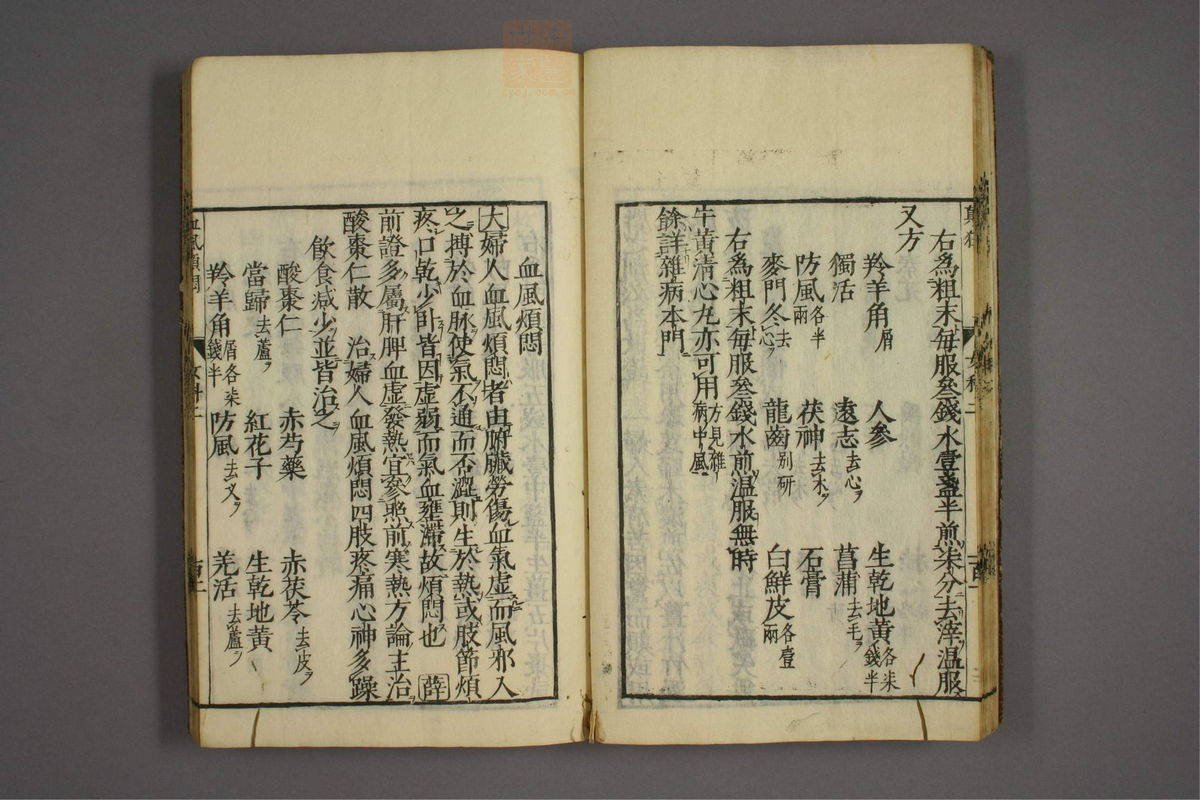 右爲粗末每服叄錢水壹盞半煎柒分去滓温服
又方
羚羊角屑 人參 生乾地黃各柒錢半
獨活 遠志去心 菖蒲去毛
防風各半兩 茯神去木 石膏
麥門冬去心 龍齒别研 白鮮皮各壹兩
右爲粗末每服叄錢水煎温服無時
牛黃清心丸亦可用方見雜病中風
餘詳雜病本門
女科二
血風煩悶
大婦人血風煩悶者由腑臟勞傷血氣虛而風邪入
之搏於血脉使氣不通而否澀則生於熱或肢節煩
疼口乾少卧皆因虛弱而氣血壅滯故煩悶也 薛
前證多屬肝脾血虛發熱宜參照前寒熱方論主治
酸棗仁散 治婦人血風煩悶四肢疼痛心神多躁
飲食減少並皆治之
酸棗仁 赤芍藥 赤茯苓去皮
當歸去蘆 紅花子 生乾地黃
羚羊角屑各柒錢半 防風去叉 羌活去蘆
血風煩悶
女科二